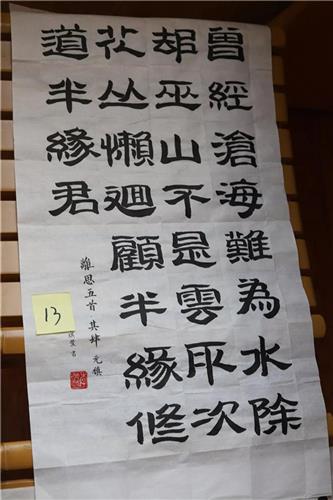 曾經滄海難為水除
却巫山不是雲取次
花丛懶迴顧半緣修
道半緣君
離思五首·其肆 元稹
書
13